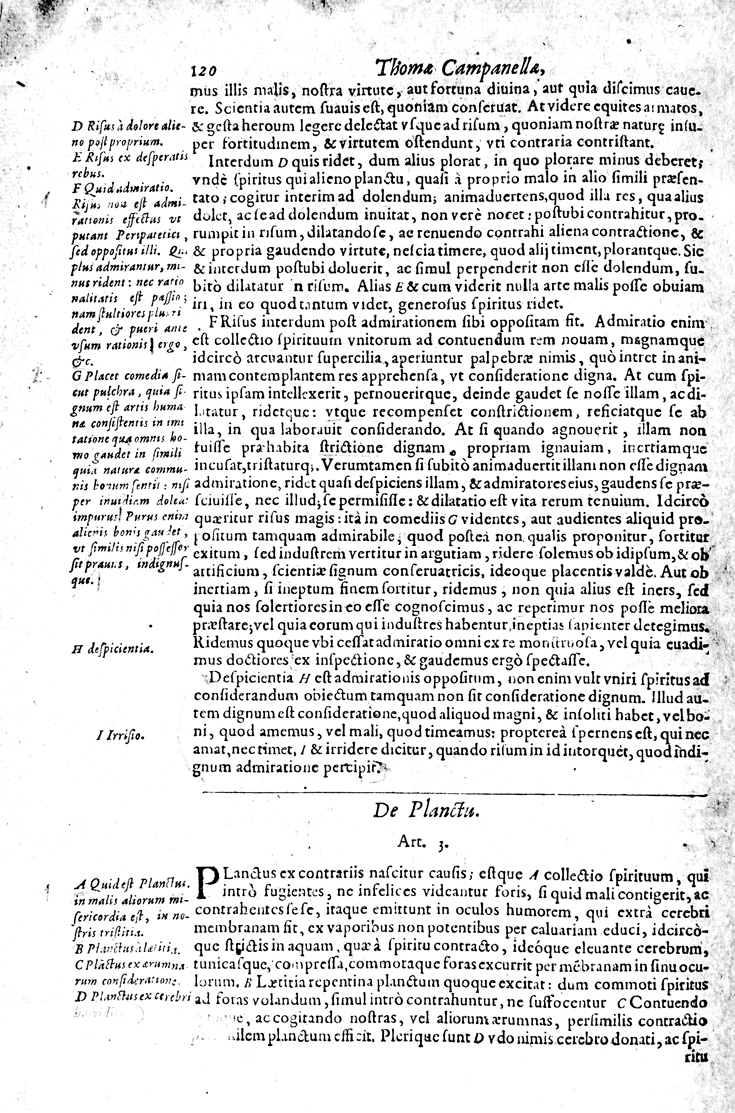 120 Thomæ Campanellæ,
mus illis malis, nostra virtute, aut fortuna diuina, aut quia discimus caue-
re. Scientia autem suauis est, quoniam conseruat. At videre equites armatos,
& gesta heroum legere delectat vsque ad risum, quoniam nostræ naturę insu-
per fortitudinem, & virtutem ostendunt, vti contraria contristant.
Interdum D quis ridet, dum alius plorat, in quo plorare minus deberet;
vndè spiritus qui alieno planctu, quasi à proprio malo in alio simili præsen-
tato; cogitur interim ad dolendum; animaduertens, quod illa res, qua alius
dolet, ac se ad dolendum inuitat, non verè nocet: postubi contrahitur, pro-
rumpit in risum, dilatandose, ac renuendo contrahi aliena contractione, &
& propria gaudendo virtute, nescia timere, quod alij timent, plorantque. Sic
& interdum postubi doluerit, ac simul perpenderit non esse dolendum, su-
bitò dilatatur in risum. Alias E & cum viderit nulla arte malis posse obuiam
iri, in eo quod tantum videt, generosus spiritus ridet.
F Risus interdum post admirationem sibi oppositam fit. Admiratio enim
est collectio spirituum vnitorum ad contuendum rem nouam, magnamque
idcircò arcuantur supercilia, aperiuntur palpebræ nimis, quò intret in ani-
mam contemplantem res apprehensa, vt consideratione digna. At cum spi-
ritus ipsam intellexerit, pernoueritque, deinde gaudet se nosse illam, ac di-
latatur, ridetque: vtque recompenset constrictionem, reficiatque se ab
illa, in qua laborauit considerando. At si quando agnouerit, illam non
fuisse præhabita strictione dignam, propriam ignauiam, inertiamque
incusat, tristaturq;. Verumtamen si subitò animaduertit illam non esse dignam
admiratione, ridet quasi despiciens illam, & admiratores eius, gaudens se præ-
sciuisse, nec illud se permisisse: & dilatatio est vita rerum tenuium. Idcircò
quæritur risus magis: ità in comediis G videntes, aut audientes aliquid pro-
positum tamquam admirabile, quod posteà non qualis proponitur, sortitur
exitum, sed industrem vertitur in argutiam, ridere solemus ob id ipsum, & ob
artificium, scientiæ signum conseruatricis, ideoque placentis valdè. Aut ob
inertiam, si ineptum finem sortitur, ridemus, non quia alius est iners, sed
quia nos solertiores in eo esse cognoscimus, ac reperimur nos posse meliora
præstare; vel quia eorum qui industres habentur, ineptias sapienter detegimus.
Ridemus quoque vbi cessat admiratio omni ex re monstruosa, vel quia euadi-
mus doctiores ex inspectione, & gaudemus ergò spectasse.
Despicientia H est admirationis oppositum, non enim vult vniri spiritus ad
considerandum obiectum tamquam non sit consideratione dignum. Illud au-
tem dignum est consideratione, quod aliquod magni, & insoliti habet, vel bo-
ni, quod amemus, vel mali, quod timeamus: proptereà spernens est, qui nec
amat, nec timet, I & irridere dicitur, quando risum in id intorquet, quod indi-
gnum admiratione percipit.
D Risus à dolore alie-
no post proprium.
E Risus ex desperatis
rebus.
F Quid admiratio.
Risus non est admi-
rationis effectus vt
putant Peripatetici,
sed oppositus illi. Qui
plus admirantur, mi-
nus rident: nec ratio
nalitatis est passio;
nam stultiores plus ri
dent, & pueri ante
vsum rationis, ergo,
&c.
G Placet comedia si-
cut pulchra, quia si-
gnum est artis huma-
næ consistentis in imi
tatione qua omnis ho-
mo gaudet in simili
quia naturæ commu-
nis bonum sentit: nisi
per inuidiam doleat
impurus. Purus enim
alienis bonis gaudet,
vt similis nisi possessor
sit prauus, indignus-
que.
H despicientia.
I Irrisio.
De Planctu.
Art. 3.
PLanctus ex contrariis nascitur causis; estque A collectio spirituum, qui
intrò fugientes, ne infelices videantur foris, si quid mali contigerit, ac
contrahentes sese, itaque emittunt in oculos humorem, qui extrà cerebri
membranam fit, ex vaporibus non potentibus per caluariam educi, idcircò-
que strictis in aquam, quæ à spiritu contracto, ideóque eleuante cerebrum,
tunicasque, compressa, commotaque foras excurrit per mēbranam in sinu ocu-
lorum. B Lætitia repentina planctum quoque excitat: dum commoti spiritus
ad foras volandum, simul intrò contrahuntur, ne suffocentur C Contuendo
ac cogitando nostras, vel aliorum ærumnas, persimilis contractio
planctum efficit. Plerique sunt D vdo nimis cerebro donati, ac spi-
ritu
A Quid est Planctus.
in malis aliorum mi-
sericordia est, in no-
stris tristitia.
B Planctus à lætitia.
C Plāctus ex ærumna
rum consideratione.
D Planctus ex cerebri